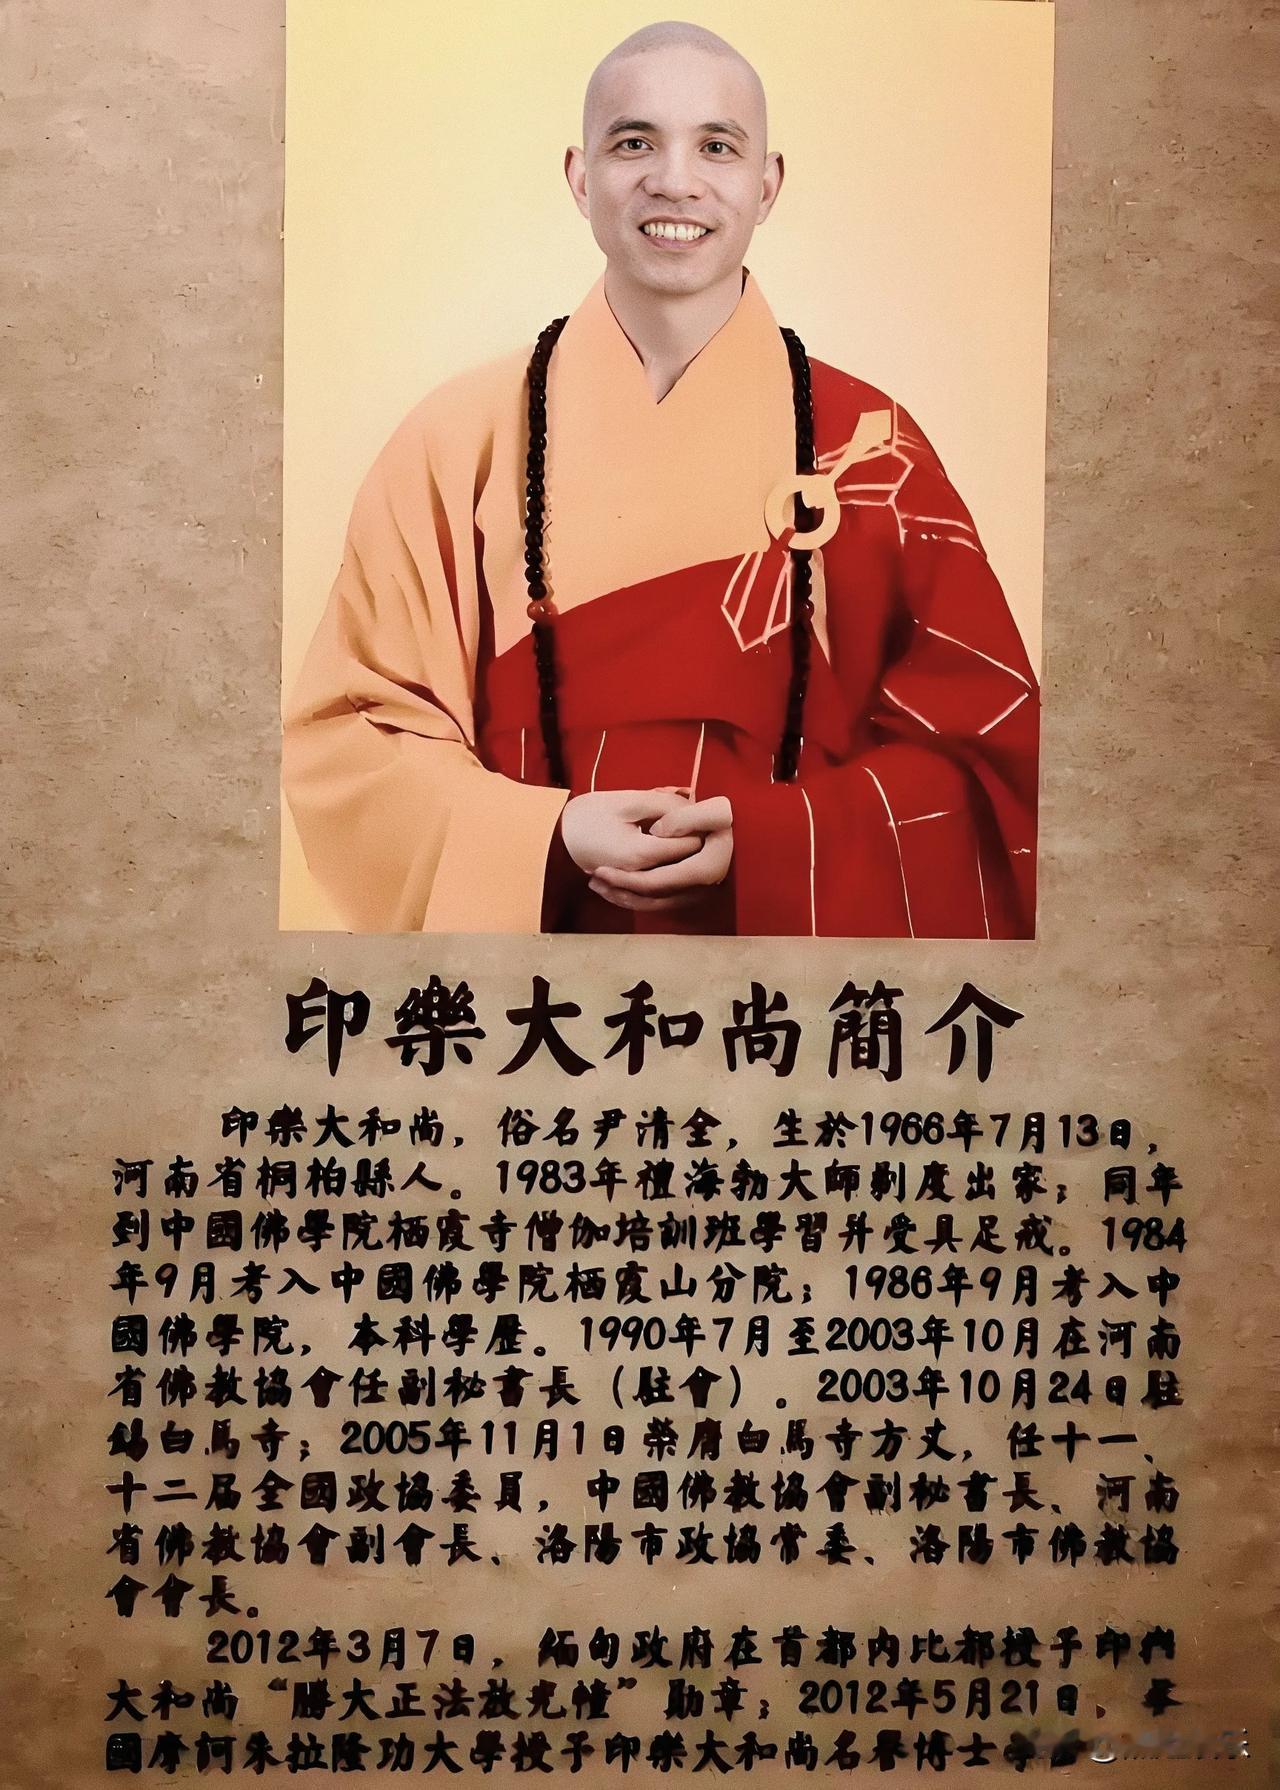 印樂大和尚簡介
印樂大和尚，俗名尹清全，生於1966年7月13日，
河南省桐柏縣人。1983年禮海勃大師剃度出家；同年
到中國佛學院栖霞寺僧伽培訓班學習并受具足戒。1984
年9月考入中國佛學院栖霞山分院；1986年9月考入中
國佛學院，本科學歷。1990年7月至2003年10月在河南
省佛教協會任副秘書長（駐會）。2003年10月24日駐
錫白馬寺；2005年11月1日榮膺白馬寺方丈，任十一、
十二届全國政協委員，中國佛教協會副秘書長、河南
省佛教協會副會長、洛陽市政協常委、洛陽市佛教協
會會長。
2012年3月7日，緬甸政府在首都内比都授予印
大和尚“勝大正法放光幢”勛章；2012年5月21日，
國摩訶朱拉隆功大學授予印樂大和尚名譽博士學